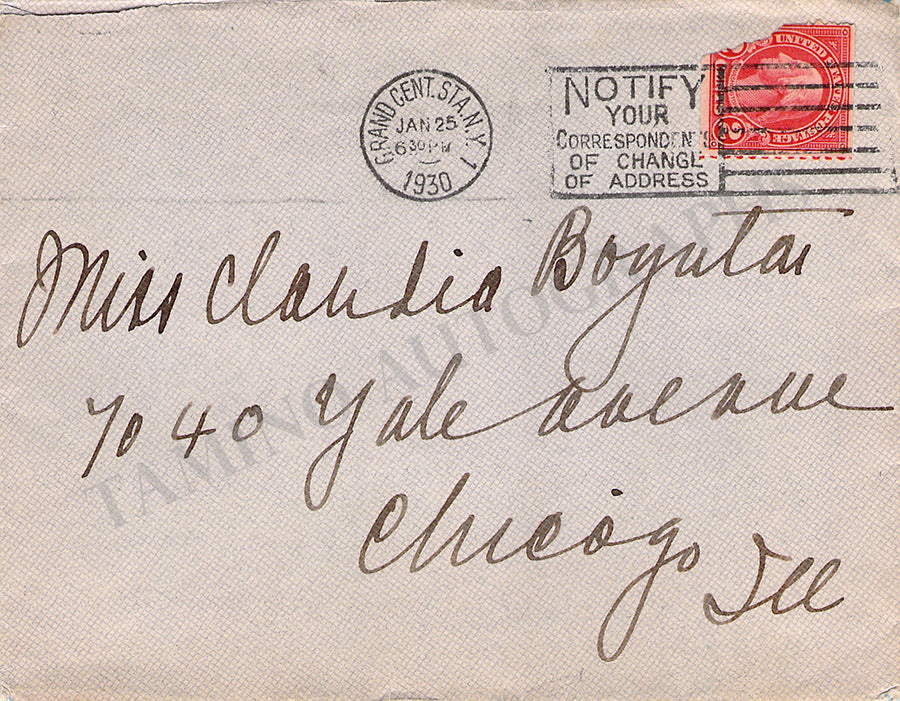 GRAND CENT. STA. N.Y. 1
JAN 25
6 30 PM
1930
NOTIFY
YOUR
CORRESPONDENTS
OF CHANGE
OF ADDRESS
UNITED STATES POSTAGE
2
Miss Claudia Boynton
7040 Yale Avenue
Chicago, Ill
TAMINO AUTOGRAPHS